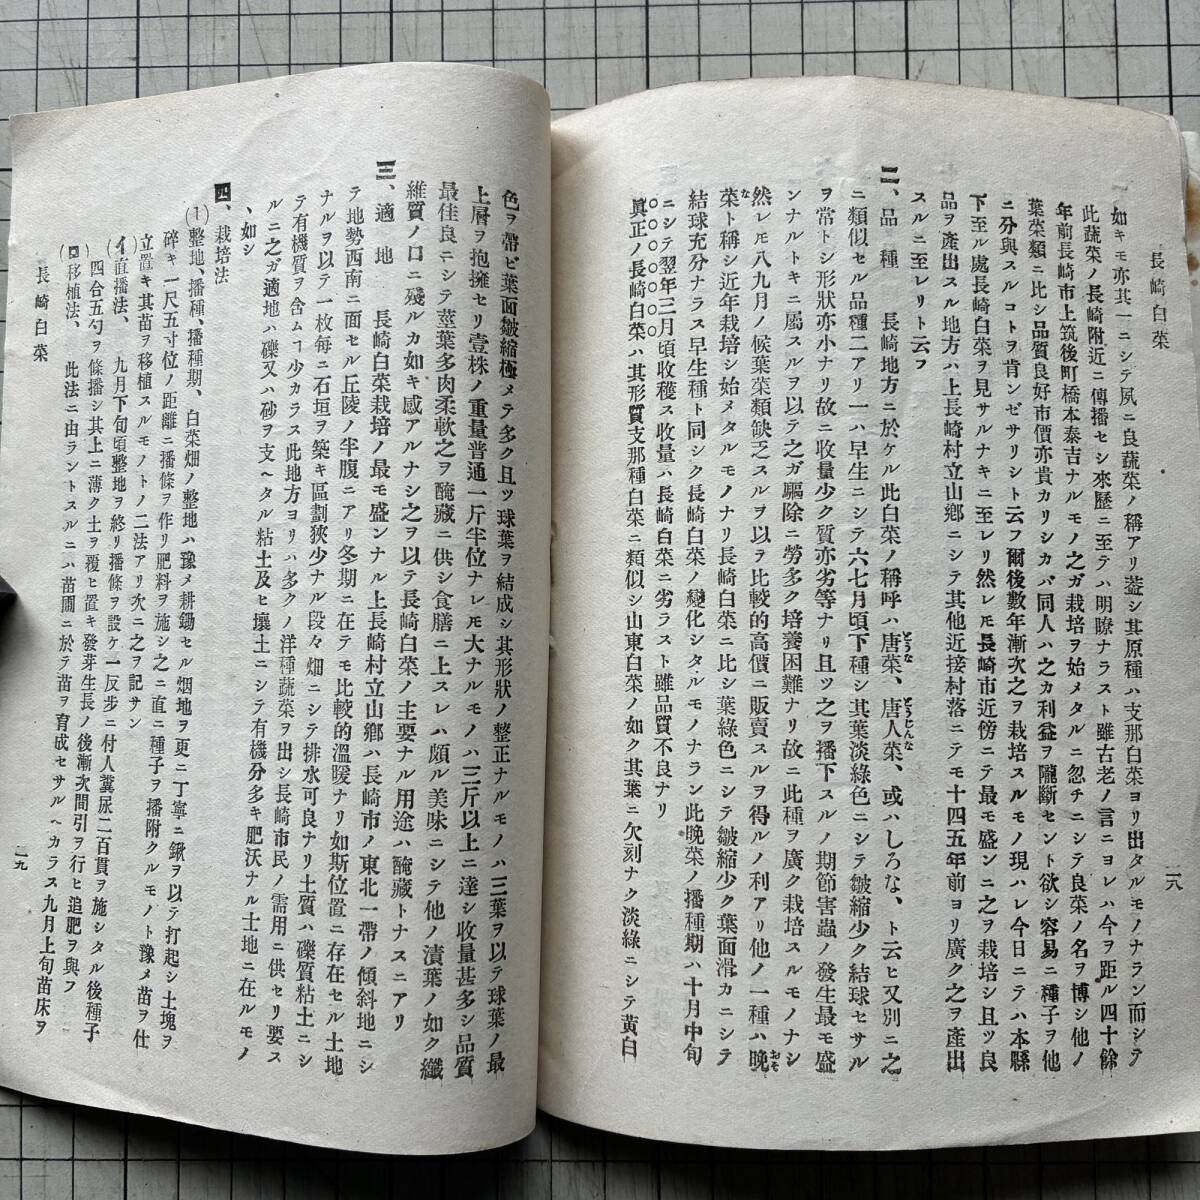 長崎白菜
二八
如キモ亦其一ニシテ夙ニ良蔬菜ノ稱アリ蓋シ其原種ハ支那白菜ヨリ出タルモノナラン而シテ
此蔬菜ノ長崎附近ニ傳播セシ來歷ニ至テハ明瞭ナラスト雖古老ノ言ニヨレハ今ヲ距ル四十餘
年前長崎市上筑後町橋本泰吉ナルモノ之ガ栽培ヲ始メタルニ忽チニシテ良菜ノ名ヲ博シ他ノ
葉菜類ニ比シ品質良好市價亦貴カリシカバ同人ハ之カ利益ヲ隴斷セント欲シ容易ニ種子ヲ他
ニ分與スルコトヲ肯ンゼサリシト云フ爾後數年漸次之ヲ栽培スルモノ現ハレ今日ニテハ本縣
下至ル處長崎白菜ヲ見サルナキニ至レリ然レモ長崎市近傍ニテ最モ盛ンニ之ヲ栽培シ且ツ良
品ヲ產出スル地方ハ上長崎村立山鄕ニシテ其他近接村落ニテモ十四五年前ヨリ廣ク之ヲ產出
スルニ至レリト云フ
二、品種 長崎地方ニ於ケル此白菜ノ稱呼ハ唐菜、唐人菜、或ハしろな、ト云ヒ又別ニ之
ニ類似セル品種二アリ一ハ早生ニシテ六七月頃下種シ其葉淡綠色ニシテ皺縮少ク結球セサル
ヲ常トシ形狀亦小ナリ故ニ收量少ク質亦劣等ナリ且ツ之ヲ播下スルノ期節害蟲ノ發生最モ盛
ンナルトキニ屬スルヲ以テ之ガ驅除ニ勞多ク培養困難ナリ故ニ此種ヲ廣ク栽培スルモノナシ
然レモ八九月ノ候葉菜類缺乏スルヲ以テ比較的高價ニ販賣スルヲ得ルノ利アリ他ノ一種ハ晩
菜ト稱シ近年栽培シ始メタルモノナリ長崎白菜ニ比シ葉綠色ニシテ皺縮少ク葉面滑カニシテ
結球充分ナラス早生種ト同シク長崎白菜ノ變化シタルモノナラン此晩菜ノ播種期ハ十月中旬
ニシテ翌年三月頃收穫ス收量ハ長崎白菜ニ劣ラスト雖品質不良ナリ
眞正ノ長崎白菜ハ其形質支那種白菜ニ類似シ山東白菜ノ如ク其葉ニ欠刻ナク淡綠ニシテ黃白
色ヲ帶ビ葉面皺縮極メテ多ク且ツ球葉ヲ結成シ其形狀ノ整正ナルモノハ三葉ヲ以テ球葉ノ最
上層ヲ抱擁セリ壹株ノ重量普通一斤半位ナレモ大ナルモノハ三斤以上ニ達シ收量甚多シ品質
最佳良ニシテ莖葉多肉柔軟之ヲ醃藏ニ供シ食膳ニ上スレハ頗ル美味ニシテ他ノ漬葉ノ如ク纖
維質ノ口ニ殘ルカ如キ感アルナシ之ヲ以テ長崎白菜ノ主要ナル用途ハ醃藏トナスニアリ
三、適地 長崎白菜栽培ノ最モ盛ンナル上長崎村立山鄕ハ長崎市ノ東北一帶ノ傾斜地ニシ
テ地勢西南ニ面セル丘陵ノ半腹ニアリ冬期ニ在テモ比較的溫暖ナリ如斯位置ニ存在セル土地
ナルヲ以テ一枚每ニ石垣ヲ築キ區劃狹少ナル段々畑ニシテ排水可良ナリ土質ハ礫質粘土ニシ
テ有機質ヲ含ムヿ少カラス此地方ヨリハ多クノ洋種蔬菜ヲ出シ長崎市民ノ需用ニ供セリ要ス
ルニ之ガ適地ハ礫又ハ砂ヲ支ヘタル粘土及ヒ壤土ニシテ有機分多キ肥沃ナル土地ニ在ルモノ
、如シ
四、栽培法
(1)整地、播種、播種期、白菜畑ノ整地ハ豫メ耕鋤セル烟地ヲ更ニ丁寧ニ鍬ヲ以テ打起シ土塊ヲ
碎キ一尺五寸位ノ距離ニ播條ヲ作リ肥料ヲ施シ之ニ直ニ種子ヲ播附クルモノト豫メ苗ヲ仕
立置キ其苗ヲ移植スルモノトノ二法アリ次ニ之ヲ記サン
(イ)直播法、 九月下旬頃整地ヲ終リ播條ヲ設ケ一反步ニ付人糞尿二百貫ヲ施シタル後種子
四合五勺ヲ條播シ其上ニ薄ク土ヲ覆ヒ置キ發芽生長ノ後漸次間引ヲ行ヒ追肥ヲ與フ
(ロ)移植法、 此法ニ由ラントスルニハ苗圃ニ於テ苗ヲ育成セサルヘカラス九月上旬苗床ヲ
長崎白菜
二九